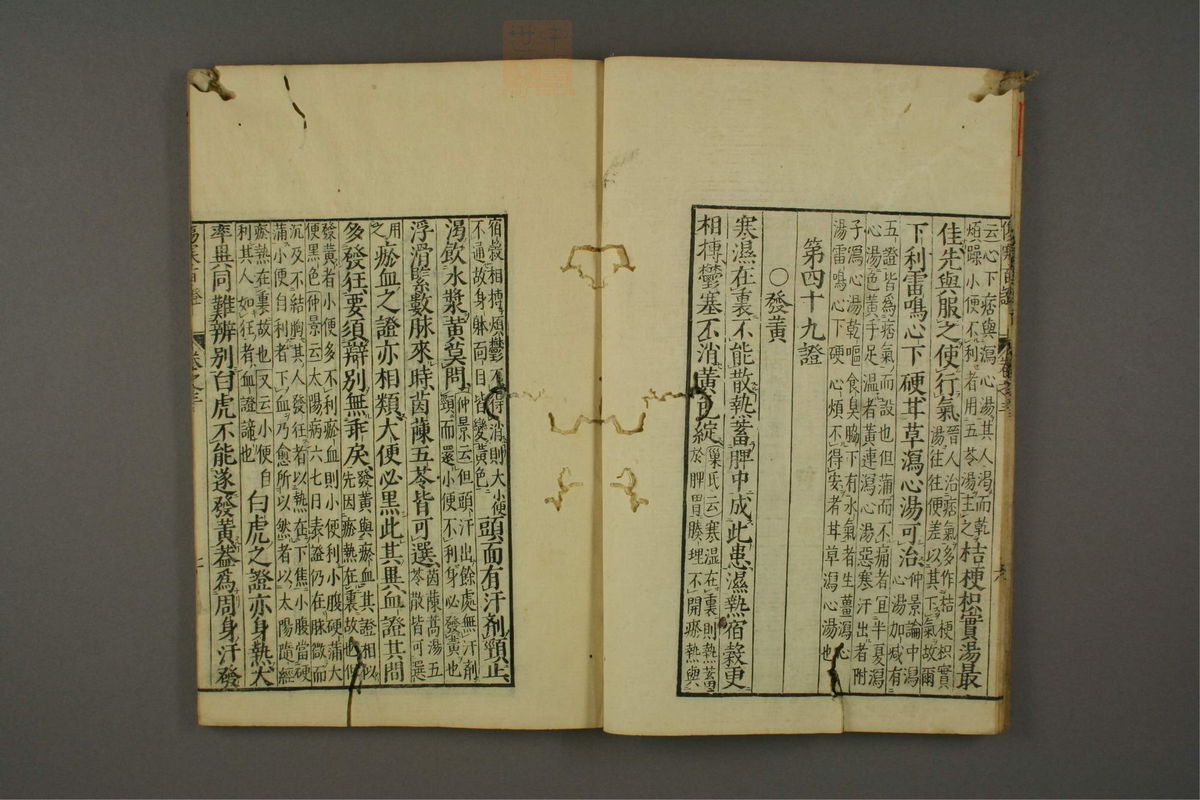 云心下痞與瀉心湯其人渴而乾
煩躁小便不利者用五苓湯主之
桔梗枳實湯最
佳先與服之使行氣
晉人治痞氣多作桔梗枳實
湯往往便差以其下氣故爾
下利雷鳴心下硬甘草瀉心湯可治
仲景論中瀉
心湯加減有
五證皆爲痞氣而設也但滿而不痛者宜半夏瀉
心湯色黃手足温者黃連瀉心湯惡寒汗出者附
子瀉心湯乾嘔食臭脇下有水氣者生薑瀉心
湯雷鳴心下硬心煩不得安者甘草瀉心湯也
第四十九證
○發黃
寒濕在裏不能散熱蓄脾中成此患濕熱宿穀更
相搏鬱塞不消黃色綻
巢氏云寒溫在裏則熱蓄
於脾胃腠理不開瘀熱與
宿穀相搏煩鬱不得消則大小便
不通故身躰面目皆變黃色
頭面有汗劑頸止
渴飲水漿黃莫問
仲景云但頭汗出餘處無汗劑
頸而還小便不利身必發黃也
浮滑緊數脉來時茵蔯五苓皆可選
茵蔯蒿湯五
苓散皆可選
用之
瘀血之證亦相類大便必黑此其異血證其間
多發狂要須辯別無乖戾
發黃與瘀血其證相似
先因瘀熱在裏故也但
發黃者小便多不利瘀血則小便利小腹硬滿大
便黑色仲景云太陽病六七日表證仍在脉微而
沉反不結胸其人發狂者以熱在下焦小腹當硬
滿小便自利者下血乃愈所以然者以太陽隨經
瘀熱在裏故也又云小便自
利其人如狂者血證諦也
白虎之證亦身熱大
率異同難辨別白虎不能遂發黃蓋爲周身汗發